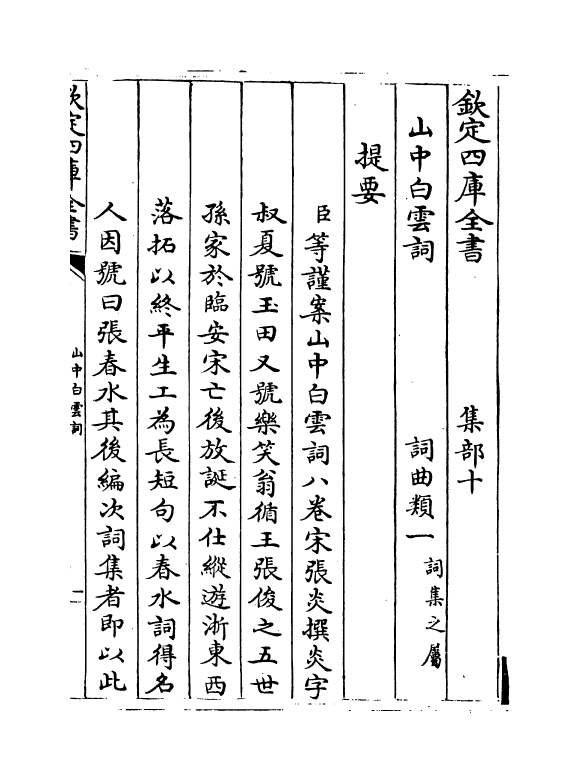 欽定四庫全書　集部十
山中白雲詞　詞曲類一　詞集之屬
提要
臣等謹案山中白雲詞八卷宋張炎撰炎字
叔夏號玉田又號樂笑翁循王張俊之五世
孫家於臨安宋亡後放誕不仕縱遊浙東西
落拓以終平生工為長短句以春水詞得名
人因號曰張春水其後編次詞集者即以此
欽定四庫全書
山中白雲詞
一